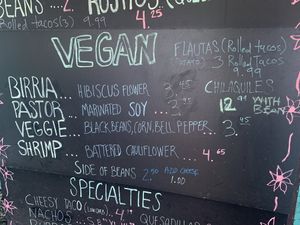 BEANS...2.
Rolled tacos(3) 9.99
4.25
VEGAN
FLAUTAS (Rolled tacos)
3 Rolled tacos
9.99
BIRRIA... HIBISCUS FLOWER 3.45
PASTOR... MARINATED SOY...
VEGGIE... BLACK BEANS, CORN, BELL PEPPER. 3.45
SHRIMP... BATTERED CAULIFLOWER... 4.65
CHILAQUILES
12.99 WITH BEANS
SIDE OF BEANS 2.50 ADD CHEESE
1.00
SPECIALTIES
CHEESY TACO
NACHOS